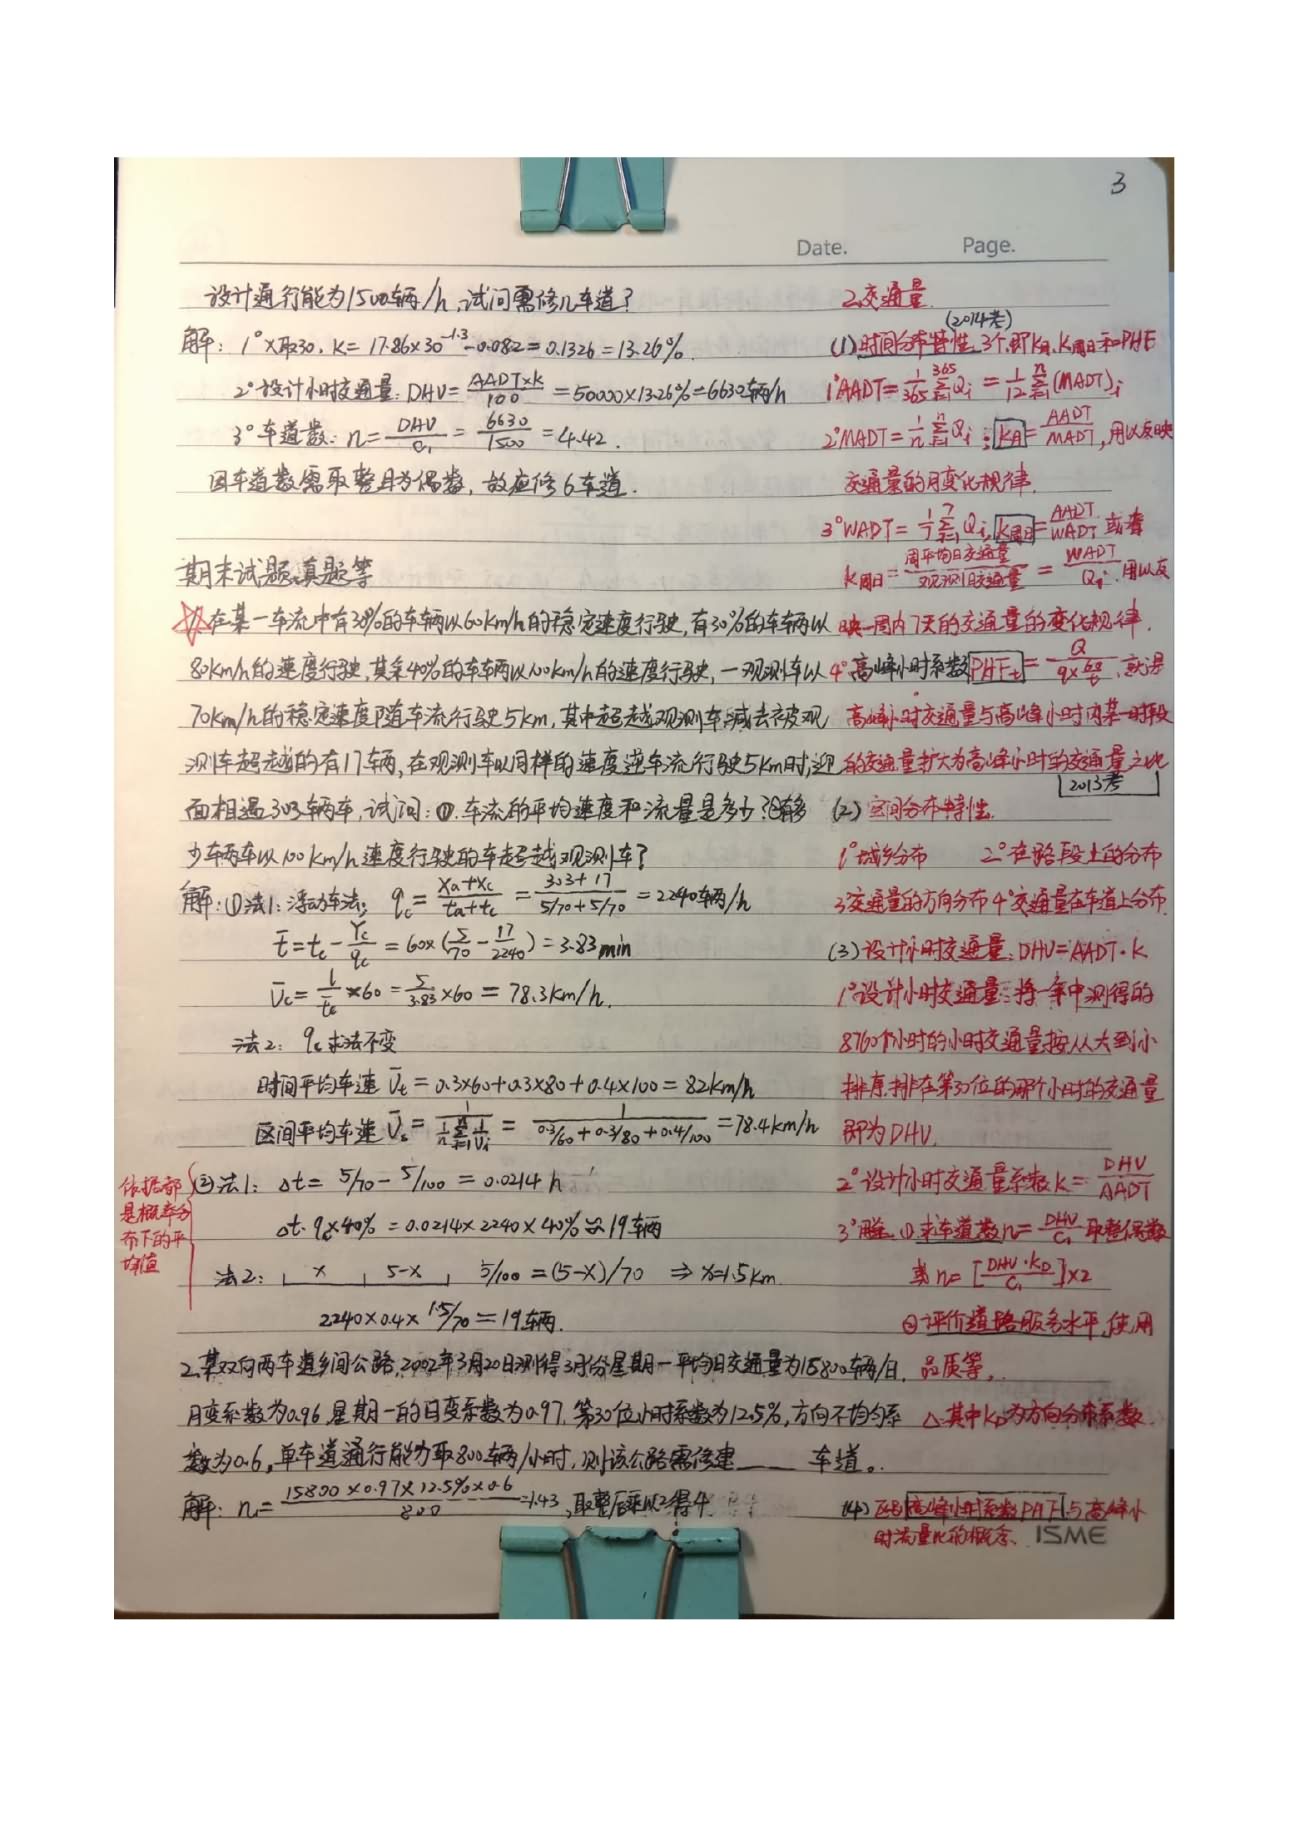 3
Date. Page.
设计通行能为1500辆/h,试问需修几车道?
解: 1° X取30. K= 17.86×30^-1.3 -0.082=0.1326=13.26%.
2° 设计小时交通量: DHV= AADT×K/100 =50000×13.26%=6630辆/h
3° 车道数: n= DHV/C₁ = 6630/1500 =4.42.
因车道数需取整且为偶数, 故应修6车道.
期末试题、真题等
在某一车流中有30%的车辆以60km/h的稳定速度行驶,有30%的车辆以
80km/h的速度行驶,其余40%的车辆以100km/h的速度行驶,一观测车以
70km/h的稳定速度随车流行驶5km,其中超越观测车减去被观
测车超越的有17辆,在观测车以同样的速度逆车流行驶5km时,迎
面相遇303辆车,试问:①.车流的平均速度和流量是多少?②有多
少车辆车以100km/h速度行驶的车超越观测车?
解:①法1:浮动车法: qc= (Xa+Xc)/(ta+tc) = (303+17)/(5/70+5/70) =2240辆/h
t̄=tc- Yc/qc =60×(5/70 - 17/2240)=3.83min
ῡc= l/t̄c ×60= 5/3.83 ×60= 78.3km/h.
法2: qc求法不变
时间平均车速 ῡt=0.3×60+0.3×80+0.4×100=82km/h
区间平均车速 ῡs= 1/(1/n Σ(i=1→n) 1/vi) = 1/(0.3/60+0.3/80+0.4/100) =78.4km/h
依据都
是概率分
布下的平
均值
②法1: Δt= 5/70 - 5/100 =0.0214 h
Δt·qc×40% =0.0214×2240×40% ≈19辆
法2: x 5-x 5/100=(5-x)/70 ⇒ x=1.5km.
2240×0.4×1.5/70=19辆.
2.某双向两车道乡间公路,2002年3月20日测得3月份星期一平均日交通量为15800辆/日,
月变系数为0.96,星期一的日变系数为0.97,第30位小时系数为12.5%,方向不均匀系
数为0.6,单车道通行能力取800辆/小时,则该公路需修建____车道。
解: n₁= 15800×0.97×12.5%×0.6/800 =1.43,取整后乘以2得4
2.交通量.
(2014考)
(1)时间分布特性 3个,即K月、K周日和PHF
1°AADT= 1/365 Σ(i=1→365) Qi = 1/12 Σ(i=1→12) (MADT)i
2°MADT= 1/n Σ(i=1→n) Qi; K月= AADT/MADT,用以反映
交通量的月变化规律.
3°WADT= 1/7 Σ(i=1→7) Qi, K周日= AADT/WADT 或者
K周日= 周平均日交通量/观测日交通量 = WADT/Qi,用以反
映一周内7天的交通量的变化规律.
4°高峰小时系数PHFt= Q/(q×60/t),就是
高峰小时交通量与高峰小时内某一时段
的交通量扩大为高峰小时的交通量之比
2013考
(2) 空间分布特性.
1°城乡分布 2°在路段上的分布
3°交通量的方向分布 4°交通量在车道上分布.
(3)设计小时交通量: DHV=AADT·K
1°设计小时交通量:将一年中测得的
8760个小时的小时交通量按从大到小
排序,排在第30位的那个小时的交通量
即为DHV.
2° 设计小时交通量系数K= DHV/AADT
3°用途 ①求车道数n= DHV/C₁ 取整偶数
或 n= [DHV·KD/C₁]×2
②评价道路服务水平,使用
品质等.
△其中KD为方向分布系数
(4) 区别高峰小时系数PHF与高峰小
时流量比的概念.
ISME